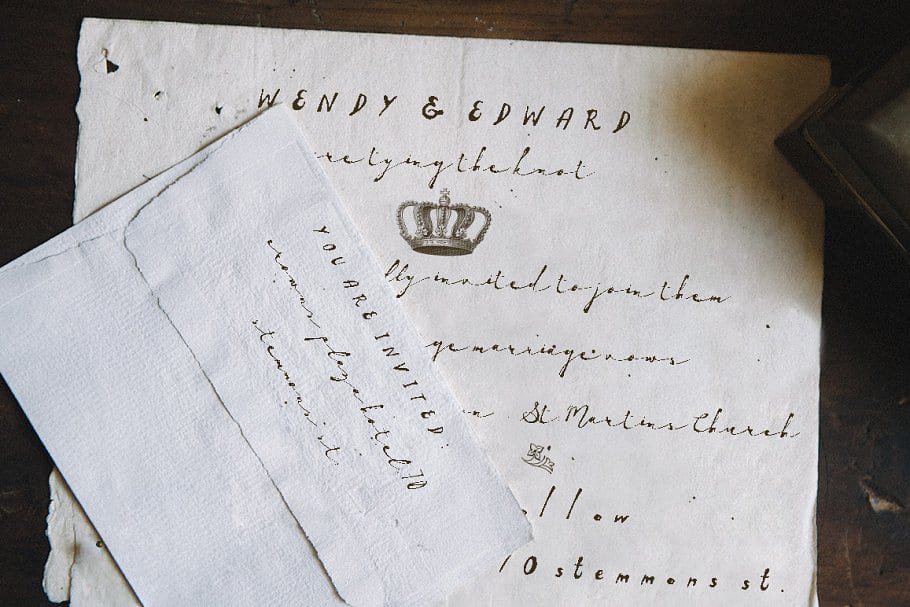 WENDY & EDWARD
re tying the knot
lly invited to join them
ge marriage vows
St Martins Church
llow
10 stemmons st.
YOU ARE INVITED
crowns plaza hotel 10
stemmons st